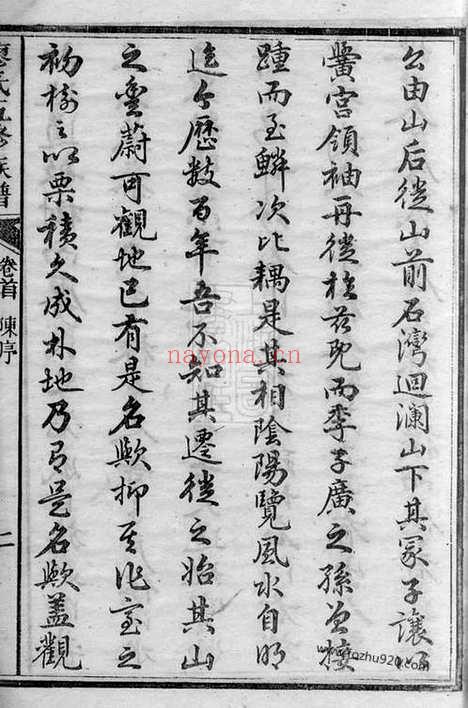 公由山后徙山前石灣迴瀾山下其冢子讓
黌宮領袖再徙於茲既而季子廣之孫曾接
踵而至鱗次比耦是其相陰陽覽風水自明
迄今歷數百年吾不知其遷徙之始其山
之壘蔚可觀地已有是名歟抑其作室之
初樹之以栗積久成林地乃有是名歟蓋觀
氏五修族譜
卷首
陳序
二
nayona.cn
fozhu920.com